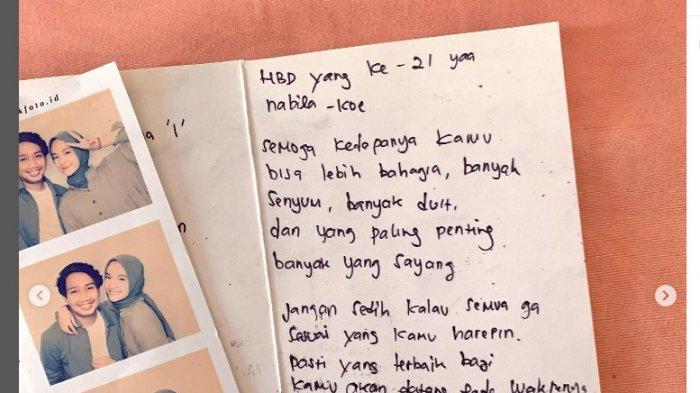 foto.id
a '1'
n
HBD yang ke - 21 yaa
nabila - koe
semoga kedepanya kamu
bisa lebih bahagia, banyak
senyum, banyak duit,
dan yang paling penting
banyak yang sayang
jangan sedih kalau semua ga
sesuai yang kamu harepin.
pasti yang terbaik bagi
kamu akan datang pada waktunya